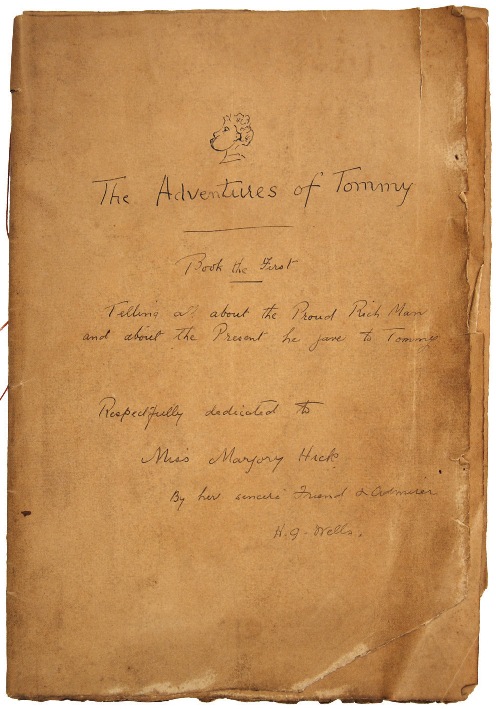 The Adventures of Tommy
Book the First
Telling all about the Proud Rich Man
and about the Present he gave to Tommy
Respectfully dedicated to
Miss Marjory Hick
By her sincere Friend & Admirer
H. G. Wells.